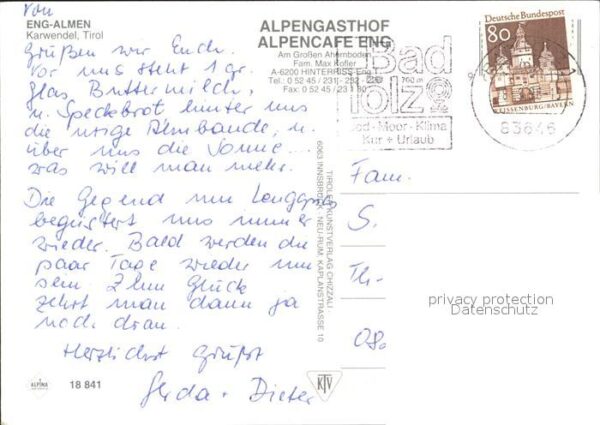 Von
ENG-ALMEN
Karwendel, Tirol
Grüßen wir Euch.
Vor uns steht 1 gr.
Glas Buttermilch,
u. Speckbrot hinter uns
die urige Almbaude, u.
über uns die Sonne
was will man mehr.
Die Gegend um Lenggries
begeistert uns immer
wieder. Bald werden die
paar Tage wieder um
sein. Zum Glück
zehrt man dann ja
noch dran.
Herzlichst Grüßt
Gerda + Dieter
ALPINA
18 841
ALPENGASTHOF
ALPENCAFE ENG
Am Großen Ahornboden
Fam. Max Kofler
A-6200 HINTERRISS-Eng
Tel. 0 52 45 / 231
Fax 0 52 45 / 23
TIROLER KUNSTVERLAG CHIZZALI
6063 INNSBRUCK - NEU-RUM, KAPLANSTRASSE 10
KTV
Bad
Tölz
Jod-Moor-Klima
Kur + Urlaub
Deutsche Bundespost
80
WEISSENBURG/BAYERN
83646
Fam.
S.
Th-
privacy protection
Datenschutz